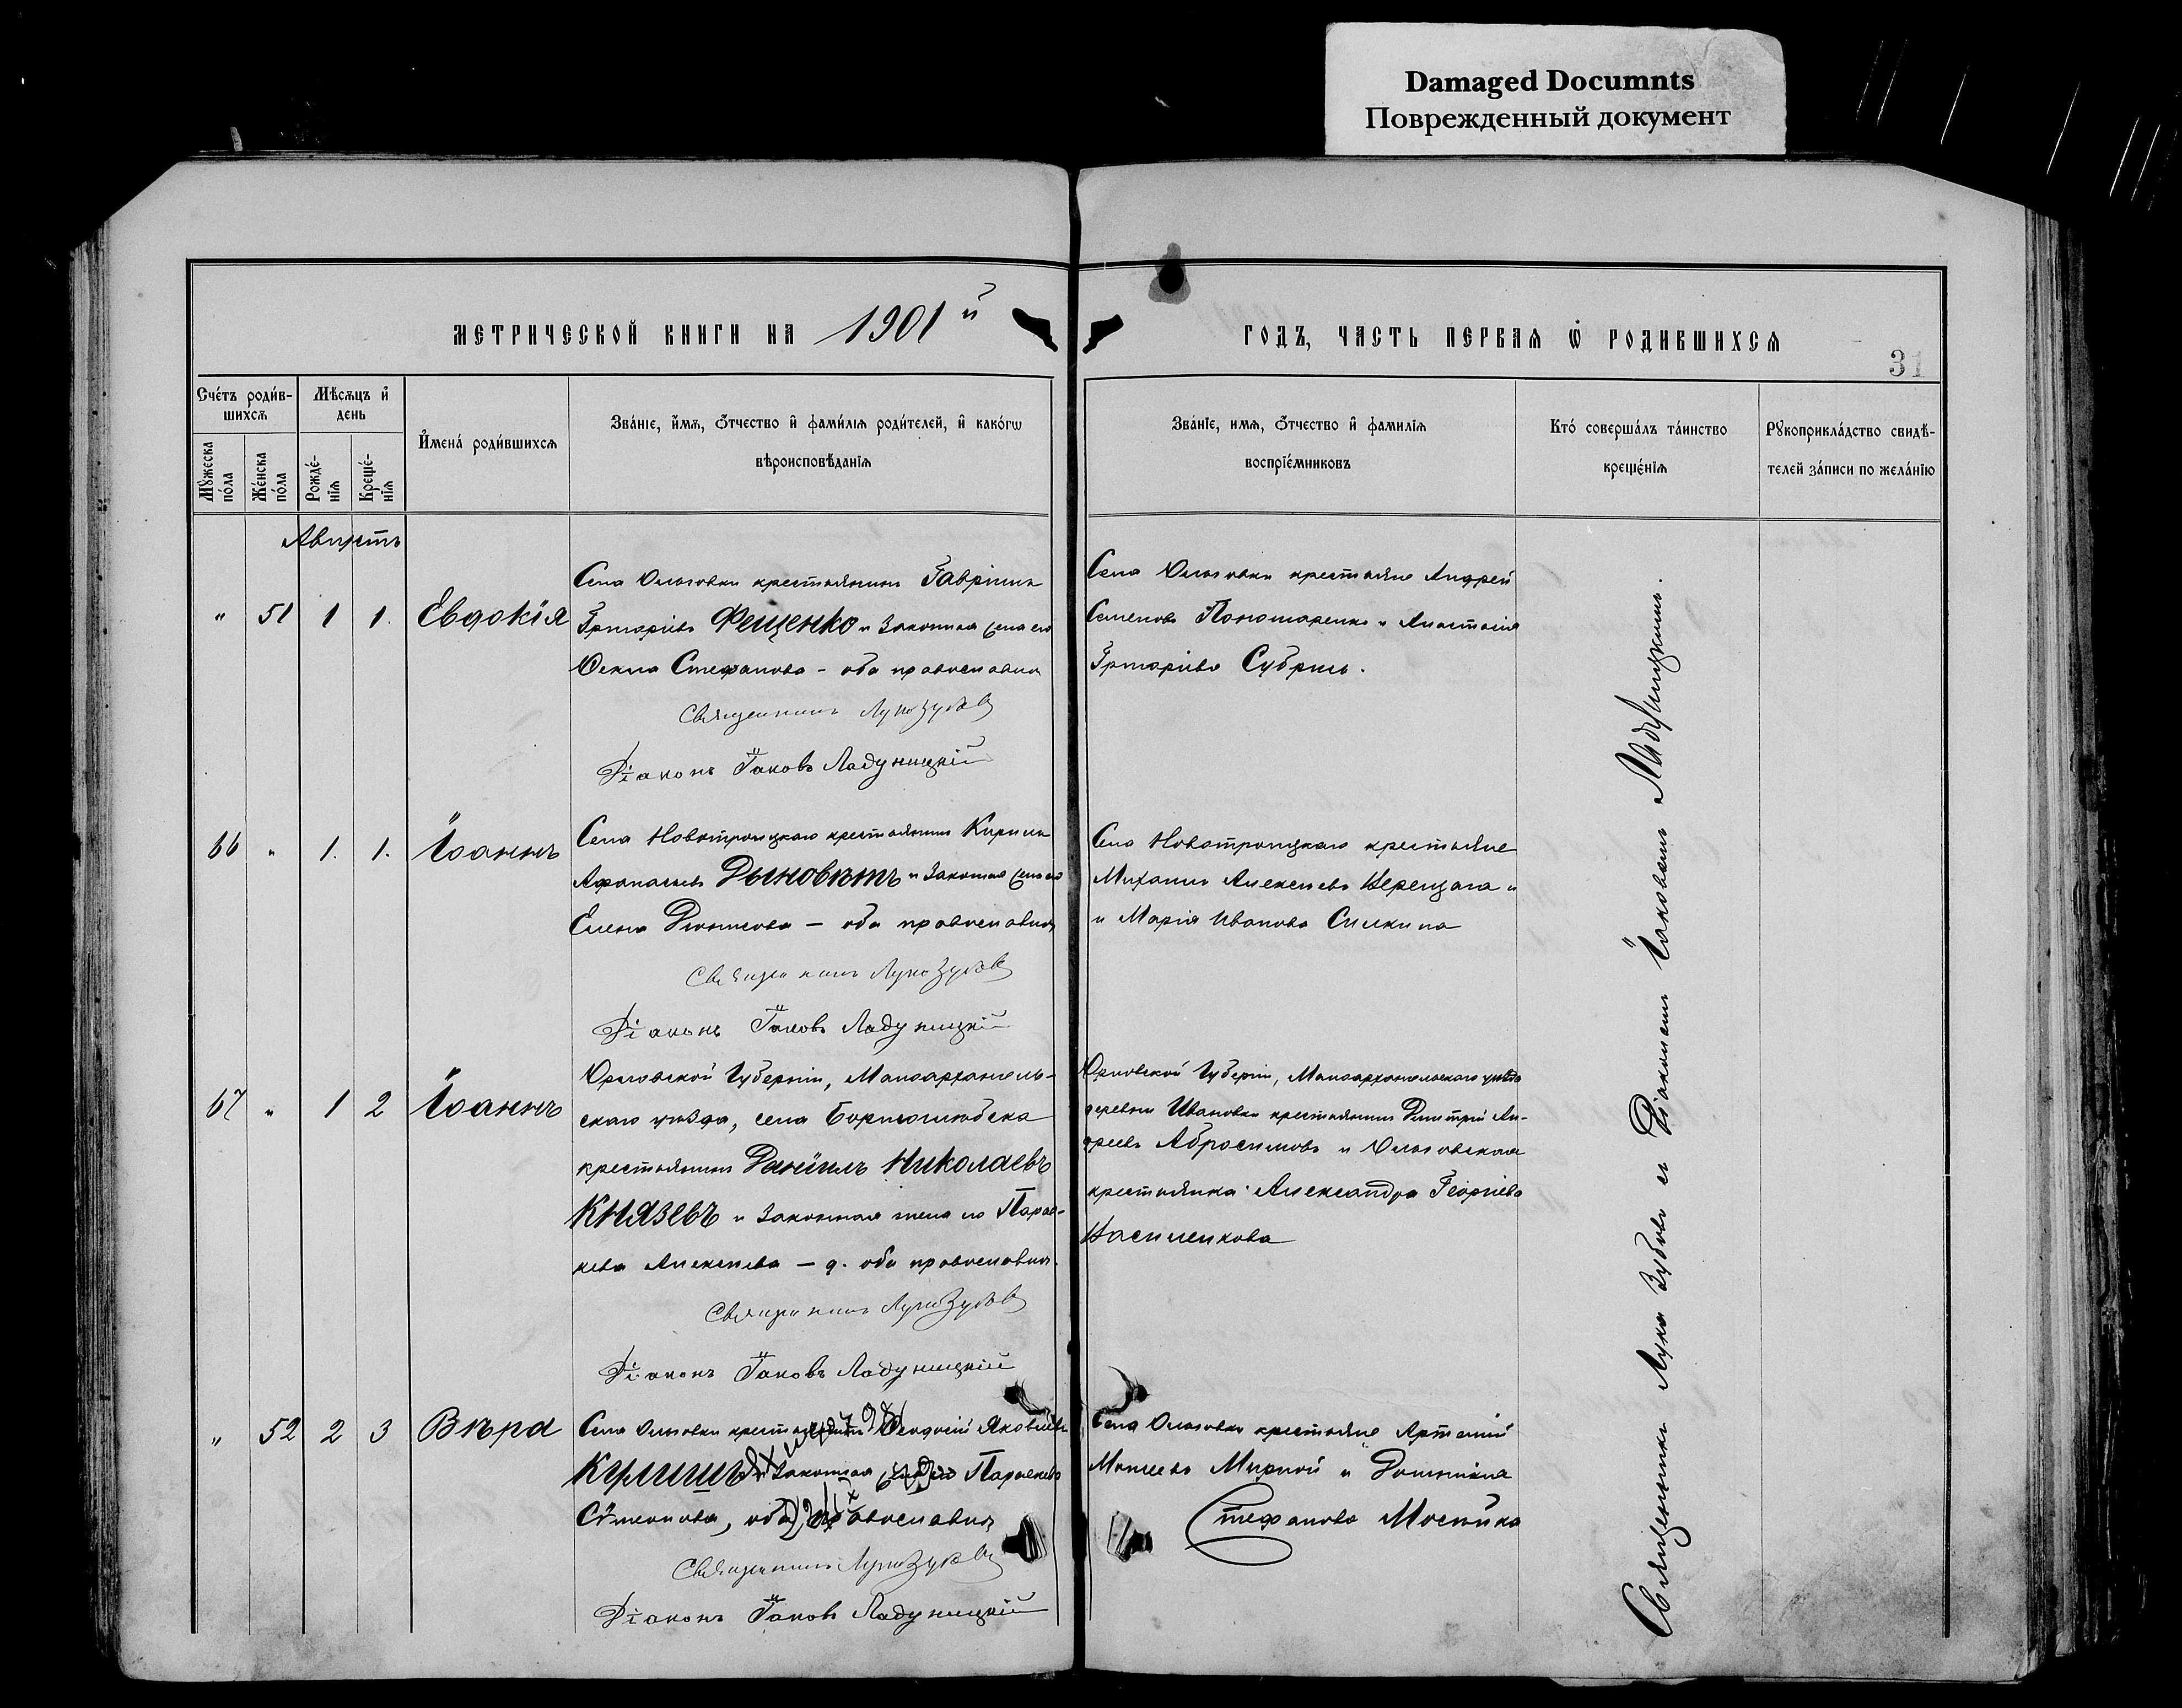 Damaged Documnts
Поврежденный документ
МЕТРИЧЕСКОЙ КНИГИ НА 1901й
ГОДЪ, ЧАСТЬ ПЕРВАЯ Ѡ РОДИВШИХСЯ
31
Счетъ родив-
шихся
Мѣсяцъ и
день
Мужеска
пола
Женска
пола
Рожде-
нія
Креще-
нія
Имена родившихся
Званіе, имя, отчество и фамилія родителей, и какогѡ
вѣроисповѣданія
Званіе, имя, отчество и фамилія
воспріемниковъ
Кто совершалъ таинство
крещенія
Рукоприкладство свидѣ-
телей записи по желанію
Августъ
" 51 1 1. Евдокія
Села Ольговки крестьянинъ Гавріилъ
Григоріевъ Фещенко и законная жена его
Ѳекла Стефанова - оба православные
Священникъ Лука Зубовъ
Діаконъ Іаковъ Ладуницкій
Села Ольговки крестьяне Андрей
Семеновъ Пономаренко и Анастасія
Григоріева
66 " 1. 1. Іоаннъ
Села Новотроицкаго крестьянинъ Кирилъ
Афанасьевъ и законная жена его
Елена - оба православные
Священникъ Лука Зубовъ
Діаконъ Іаковъ Ладуницкій
Села Новотроицкаго крестьяне
Михаилъ Алексѣевъ Верещага и
и Марія Иванова Силкина
67 " 1 2 Іоаннъ
Орловской Губерніи, Малоархангель-
скаго уѣзда, села
крестьянинъ Даніилъ Николаевъ
Князевъ и законная жена его Парас-
кева Алексѣева - оба православные.
Священникъ Лука Зубовъ
Діаконъ Іаковъ Ладуницкій
Орловской Губерніи, Малоархангельскаго уѣзда
деревни Ивановки крестьянинъ Димитрій Ан-
дреевъ Абросимовъ и Ольговская
крестьянка Александра Георгіева
Василенкова
" 52 2 3 Вѣра
Села Ольговки Ѳеодосій Яковлевъ
законная Параскева
Сѵмеонова, оба православные
Священникъ Лука Зубовъ
Діаконъ Іаковъ Ладуницкій
Села Ольговки крестьяне Артемій
Моисеевъ Мирной и Домникія
Стефанова
Священникъ Лука Зубовъ съ Діакономъ Іаковомъ Ладуницкимъ.